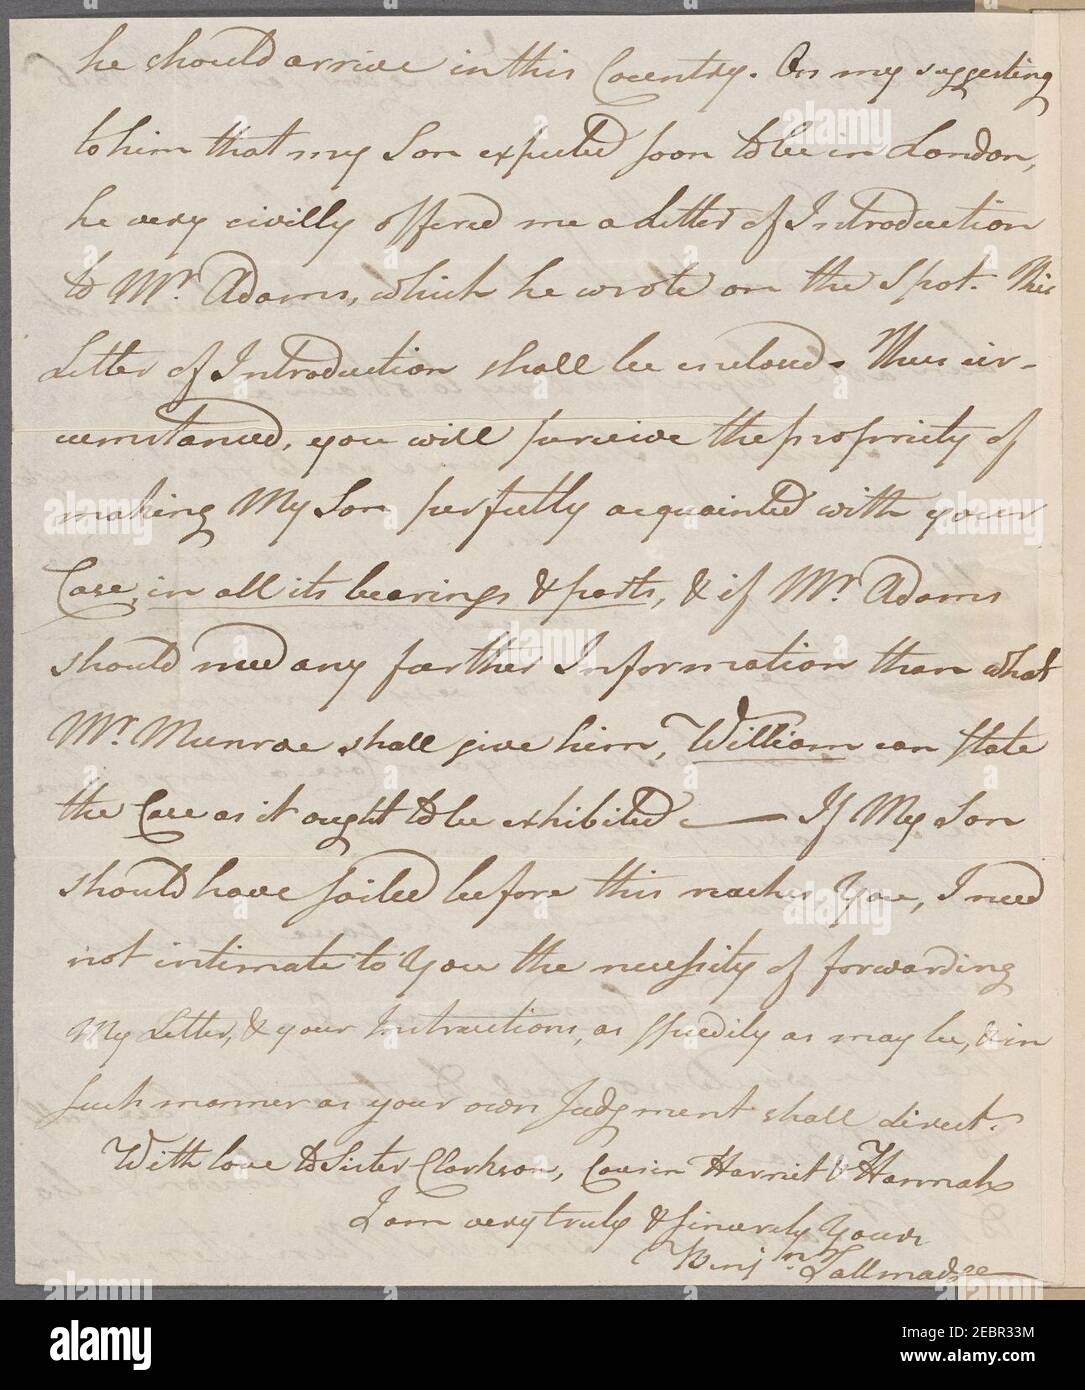 he should arrive in this Country. On my suggesting
to him that my Son expected soon to be in London,
he very civilly offered me a Letter of Introduction
to Mr. Adams, which he wrote on the Spot. This
Letter of Introduction shall be enclosed. Thus cir-
cumstanced, you will perceive the propriety of
making My Son perfectly acquainted with your
Case, in all its bearings & parts, & if Mr. Adams
should need any further Information than what
Mr. Munroe shall give him, William can state
the Case as it ought to be exhibited — If My Son
should have sailed before this reaches You, I need
not intimate to You the necessity of forwarding
My Letter, & your Instructions, as speedily as may be, & in
such manner as your own Judgment shall direct.
With love to Sister Clarkson, Cousin Harriet & Hannah
I am very truly & sincerely Yours
Benjn. Tallmadge
alamy
Image ID: 2EBR33M
www.alamy.com